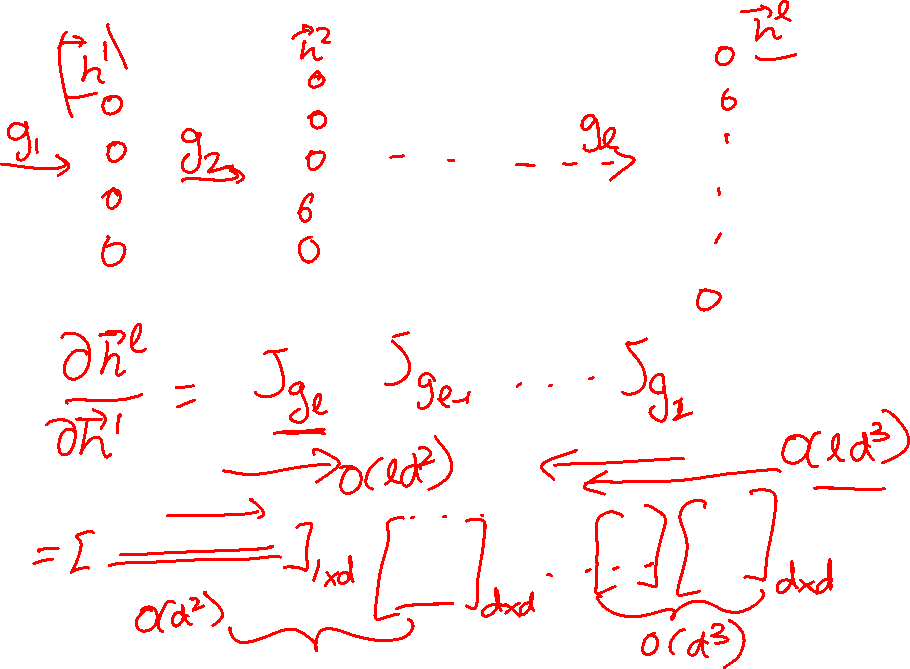 h⃗¹ h⃗² h⃗ˡ
g₁ g₂ - - - - - gₗ
∂h⃗ˡ/∂h⃗¹ = J_{gₗ} J_{gₗ₋₁} ... J_{g₁}
O(ld²) O(ld³)
= [ ]₁ₓd [ ]dxd ... [ ] [ ]dxd
O(d²) O(d³)